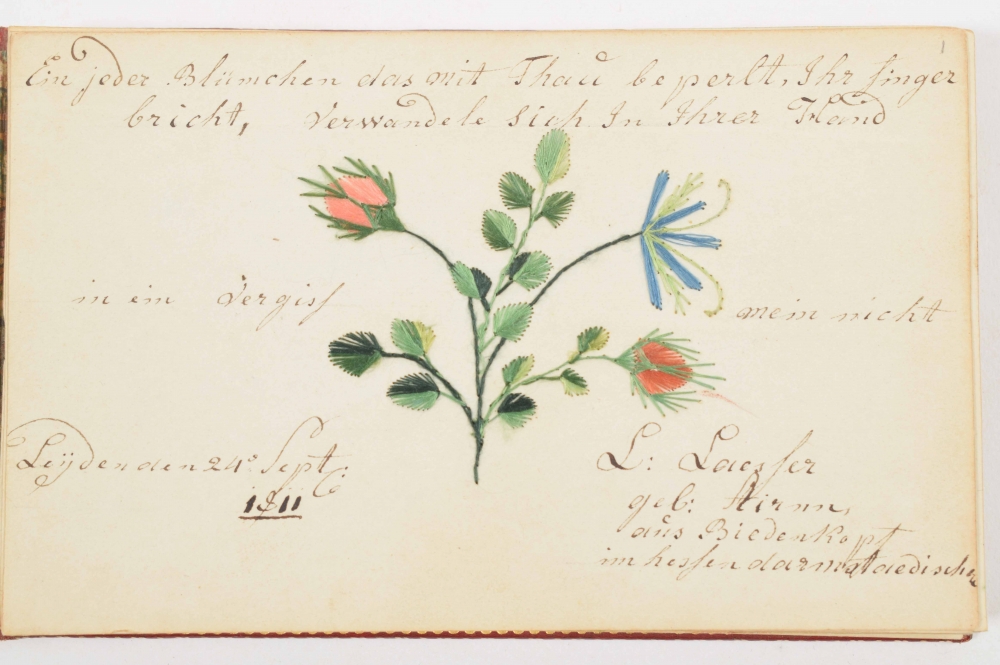 1
Ein jeder Blümchen das mit Thau be perlt, Ihr finger
bricht, Verwandele sich In Ihrer Hand
in ein Vergiss mein nicht
Leÿden den 24e Sept:
1811
L: Laesser
geb:
aus Biedenkopf
im hessen darmstaedischen